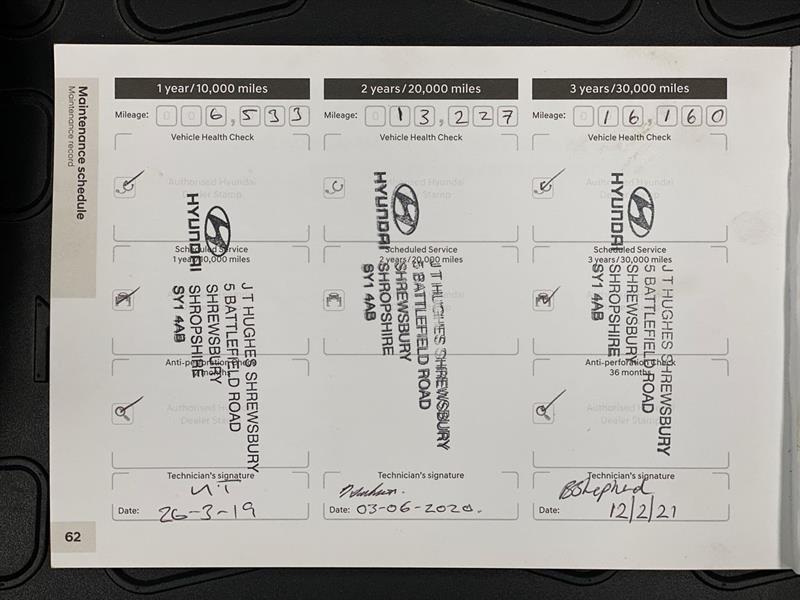 Maintenance schedule
Maintenance record
1 year/10,000 miles
Mileage: 0 0 6,533
Vehicle Health Check
Authorised Hyundai
Dealer Stamp
HYUNDAI
Scheduled Service
1 year/10,000 miles
J T HUGHES SHREWSBURY
5 BATTLEFIELD ROAD
SHREWSBURY
SHROPSHIRE
SY1 4AB
Anti-perforation Check
months
Authorised Hyundai
Dealer Stamp
Technician's signature
Date: 26-3-19
2 years/20,000 miles
Mileage: 0 13,227
Vehicle Health Check
Authorised Hyundai
Dealer Stamp
HYUNDAI
Scheduled Service
2 years/20,000 miles
J T HUGHES SHREWSBURY
5 BATTLEFIELD ROAD
SHREWSBURY
SHROPSHIRE
SY1 4AB
Technician's signature
Date: 03-06-2020.
3 years/30,000 miles
Mileage: 0 16,160
Vehicle Health Check
Authorised Hyundai
Dealer Stamp
HYUNDAI
Scheduled Service
3 years/30,000 miles
J T HUGHES SHREWSBURY
5 BATTLEFIELD ROAD
SHREWSBURY
SHROPSHIRE
SY1 4AB
Anti-perforation Check
36 months
Authorised Hyundai
Dealer Stamp
Technician's signature
BShepherd
Date: 12/2/21
62